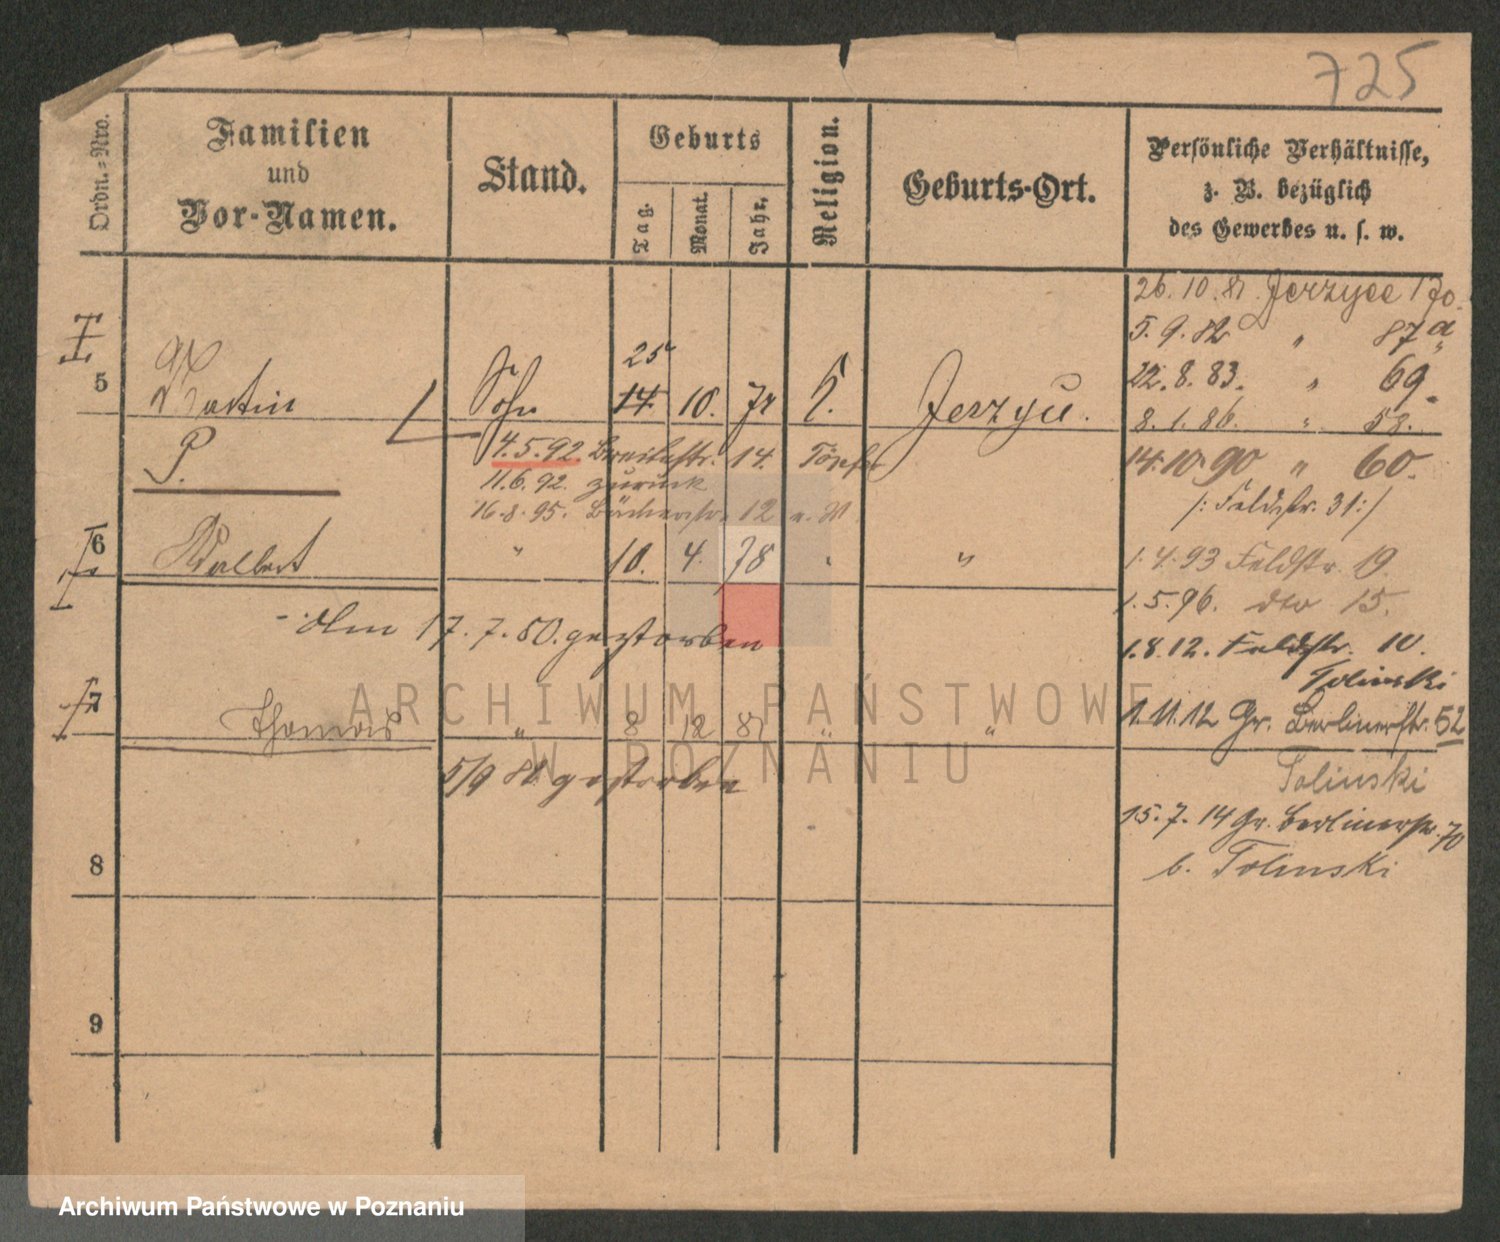 725
Ordn.=Nro.
Familien
und
Vor-Namen.
Stand.
Geburts
Tag.
Monat.
Jahr.
Religion.
Geburts-Ort.
Persönliche Verhältnisse,
z. B. bezüglich
des Gewerbes u. s. w.
26.10.81. Jerzyce 170.
5.9.82 " 87a
22.8.83. " 69.
8.1.86. " 58.
14.10.90 " 60.
/: Feldstr. 31 :/
1.4.93 Feldstr. 19.
1.5.96. dto 15.
1.8.12. Feldstr. 10.
Tolinski
1.11.12 Gr. Berlinerstr. 52
Tolinski
15.7.14 Gr. Berlinerstr. 70
b. Tolinski
25
5 Martin Sohn 14. 10. Jerzyce.
P.
4.5.92 Breitestr. 14. Töpfer
11.6.92. zurück
16.8.95. Bäckerstr. 12
6 " 10. 4. 78 " "
Am 17.7.80. gestorben
7 Thomas " 8 12 81 " "
5/9 82. gestorben
8
9
ARCHIWUM PAŃSTWOWE
W POZNANIU
Archiwum Państwowe w Poznaniu